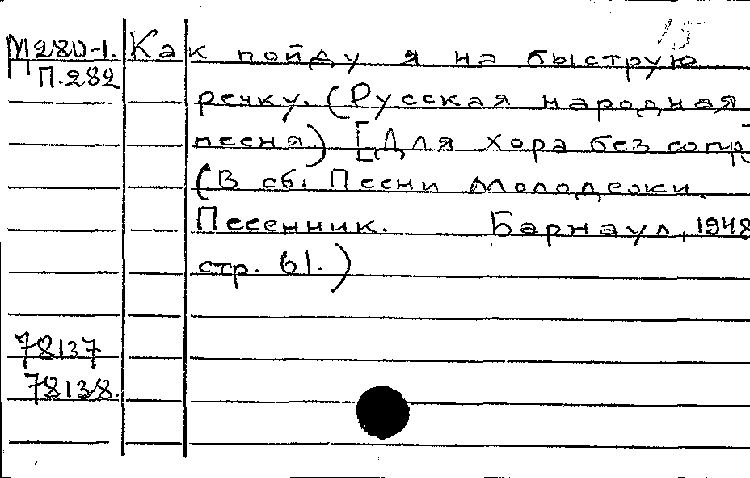 15
М280-1. Как пойду я на быструю
П.282 речку. (Русская народная
песня) [Для хора без сопр
(В сб. Песни молодежи.
Песенник. Барнаул, 1948
стр. 61.)
78137
78138.